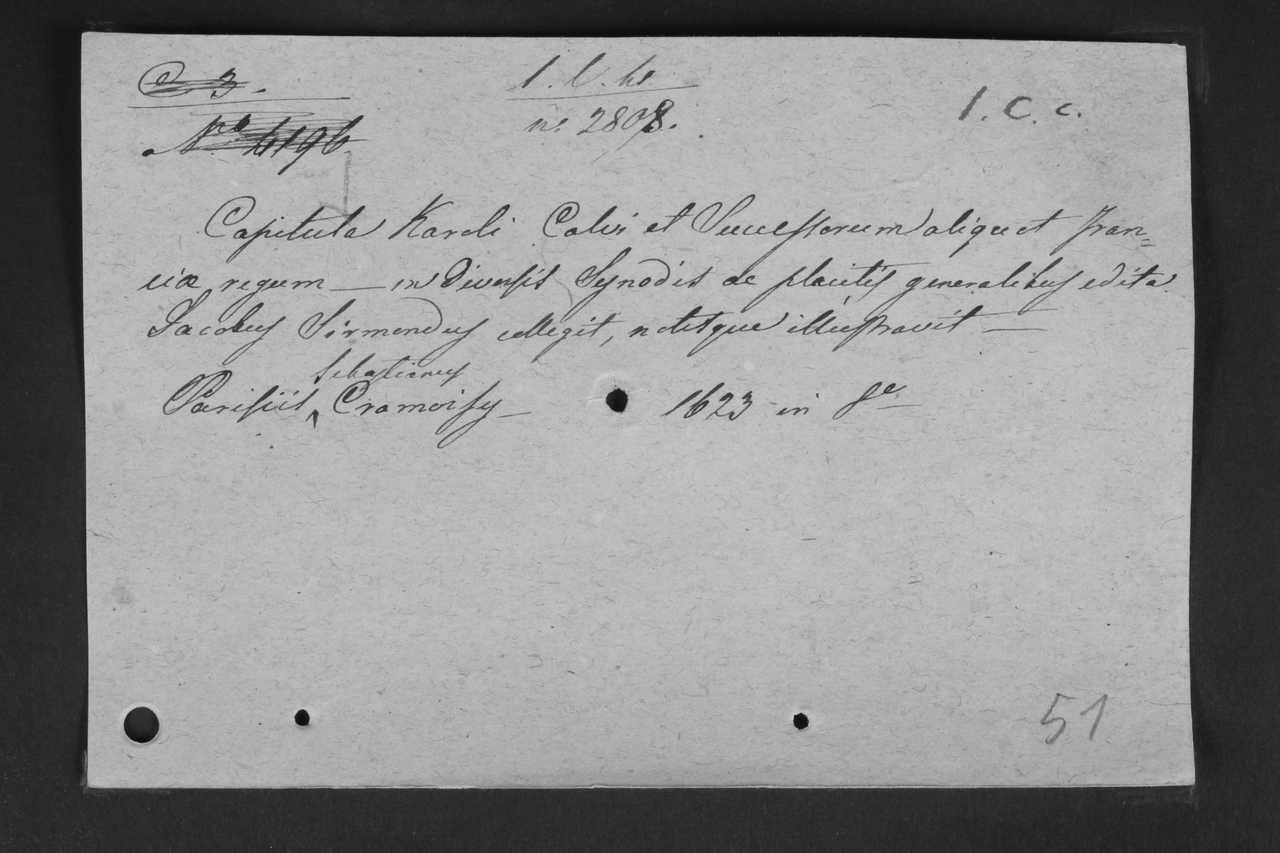 C 3.
1. C. he
1. C. c.
Nro 4196
n. 2808.
Capitula Karoli Calvi et Successorum aliquot Fran=
ciæ regum — in diversis Synodis ac placitis generalibus edita
Jacobus Sirmondus collegit, notisque illustravit —
Sebastianus
Parisiis ^ Cramoisy — 1623 in 8º
51